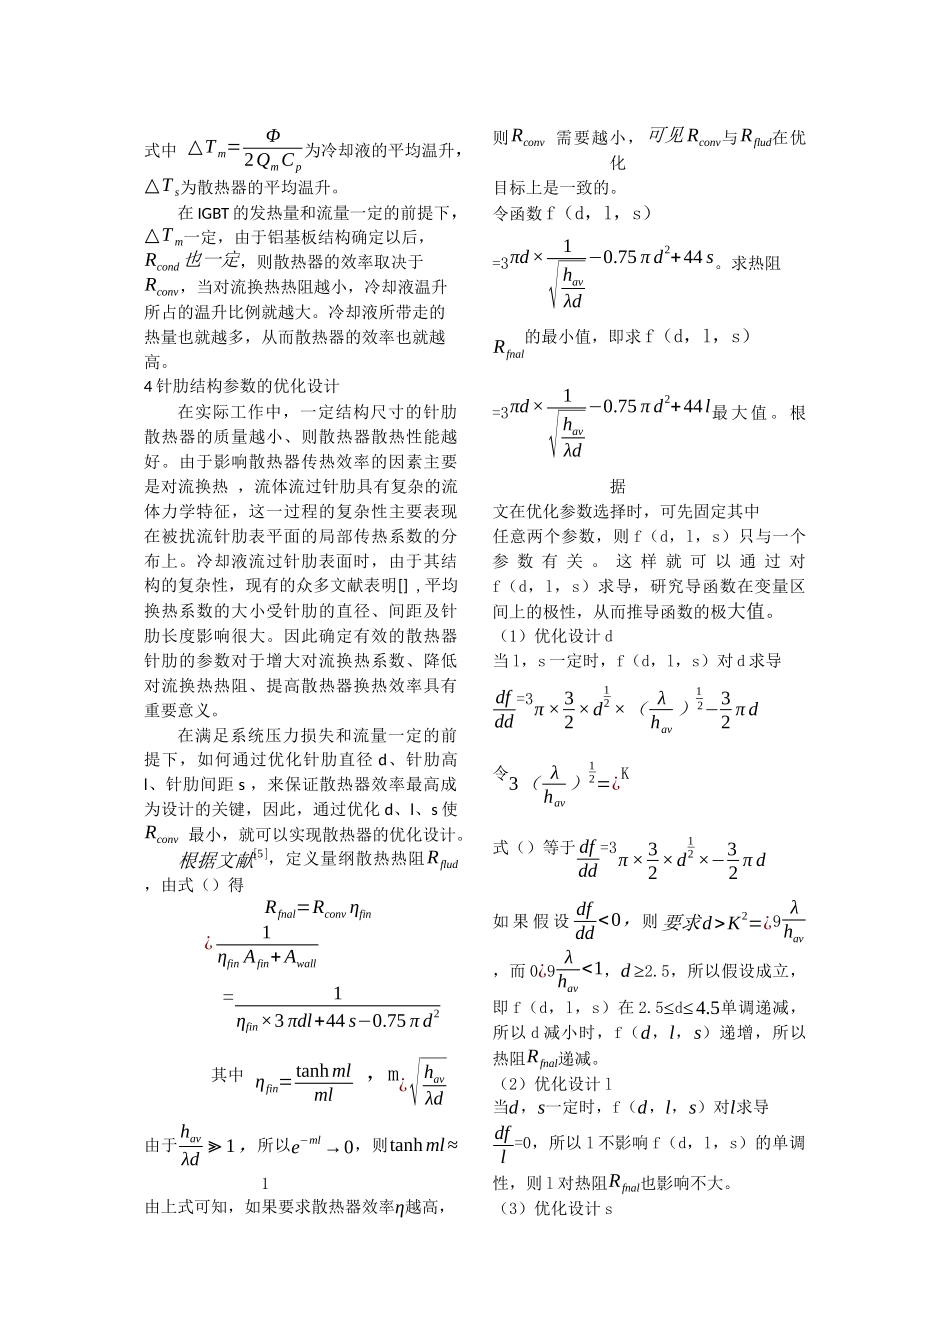 式中 △T_m=Φ/(2Q_m C_p)为冷却液的平均温升，
△T_s为散热器的平均温升。
在 IGBT 的发热量和流量一定的前提下，
△T_m一定，由于铝基板结构确定以后，
R_cond 也一定，则散热器的效率取决于
R_conv，当对流换热热阻越小，冷却液温升
所占的温升比例就越大。冷却液所带走的
热量也就越多，从而散热器的效率也就越
高。
4 针肋结构参数的优化设计
在实际工作中，一定结构尺寸的针肋
散热器的质量越小、则散热器散热性能越
好。由于影响散热器传热效率的因素主要
是对流换热 ，流体流过针肋具有复杂的流
体力学特征，这一过程的复杂性主要表现
在被扰流针肋表平面的局部传热系数的分
布上。冷却液流过针肋表面时，由于其结
构的复杂性，现有的众多文献表明[] ,平均
换热系数的大小受针肋的直径、间距及针
肋长度影响很大。因此确定有效的散热器
针肋的参数对于增大对流换热系数、降低
对流换热热阻、提高散热器换热效率具有
重要意义。
在满足系统压力损失和流量一定的前
提下，如何通过优化针肋直径 d、针肋高
l、针肋间距 s ，来保证散热器效率最高成
为设计的关键，因此，通过优化 d、l、s 使
R_conv 最小，就可以实现散热器的优化设计。
根据文献[5]，定义量纲散热热阻R_flud
，由式（）得
R_fnal=R_conv η_fin
¿ 1/(η_fin A_fin+A_wall)
= 1/(η_fin×3πdl+44s−0.75πd²)
其中 η_fin=tanh ml/ml ，m¿√(h_av/λd)
由于h_av/λd≫1，所以e^(−ml)→0，则tanh ml≈
1
由上式可知，如果要求散热器效率η越高，
则R_conv 需要越小，可见R_conv与R_flud在优
化
目标上是一致的。
令函数 f（d，l，s）
=3πd×1/√(h_av/λd)−0.75πd²+44s。求热阻
R_fnal的最小值，即求 f（d，l，s）
=3πd×1/√(h_av/λd)−0.75πd²+44l最大值。根
据
文在优化参数选择时，可先固定其中
任意两个参数，则 f（d，l，s）只与一个
参数有关。这样就可以通过对
f（d，l，s）求导，研究导函数在变量区
间上的极性，从而推导函数的极大值。
（1）优化设计 d
当 l，s 一定时，f（d，l，s）对 d 求导
df/dd=3π×3/2×d^(1/2)×（λ/h_av）^(1/2)−3/2πd
令3（λ/h_av）^(1/2)=¿K
式（）等于df/dd=3π×3/2×d^(1/2)×−3/2πd
如果假设df/dd<0，则要求d>K²=¿9λ/h_av
，而 0¿9λ/h_av<1，d≥2.5，所以假设成立，
即 f（d，l，s）在 2.5≤d≤4.5单调递减，
所以 d 减小时，f（d，l，s）递增，所以
热阻R_fnal递减。
（2）优化设计 l
当d，s一定时，f（d，l，s）对l求导
df/l=0，所以 l 不影响 f（d，l，s）的单调
性，则 l 对热阻R_fnal也影响不大。
（3）优化设计 s